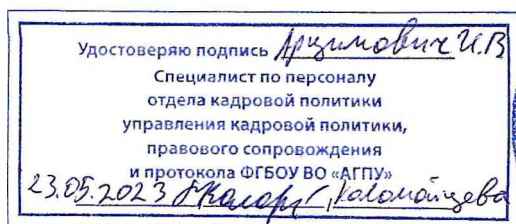 Удостоверяю подпись Арцимович И.В
Специалист по персоналу
отдела кадровой политики
управления кадровой политики,
правового сопровождения
и протокола ФГБОУ ВО «АГПУ»
23.05.2023 Коломойцева